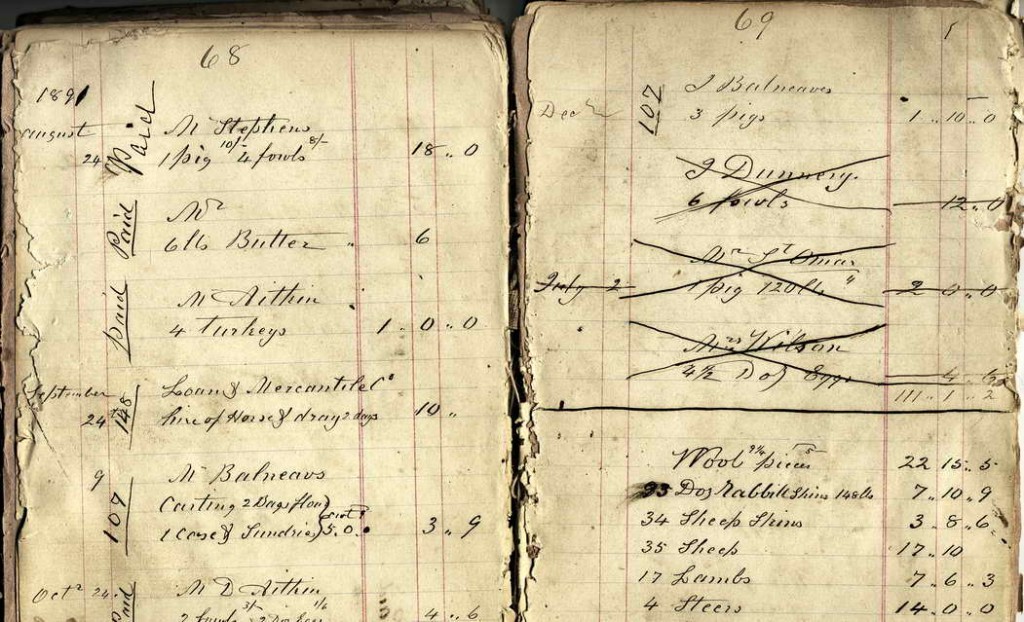 68
1891
August
Mr Stephens
10/- 8/-
24 Paid 1 pig 4 fowls 18 .. 0
Mr
Paid 6 lb Butter .. 6
Mr Aithin
Paid 4 Turkeys 1 .. 0 .. 0
September Loan & Mercantile Co
24th 148 hire of Horse & dray 2 days 10 ..
9 Mr Balneavs
Carting 2 Days flour
107 1 Case & Sundries 5.0. 3 .. 9
Octr 24 Mr D Aithin
3/- 1/6
Paid 4 .. 6
69
J Balneaves
Decr 107 3 pigs 1 .. 10 .. 0
J Dunnery.
6 fowls 12 .. 0
Mr St Omar
July 2 1 pig 120 lbs 2 0 .. 0
Mrs Wilson
4½ Doz Eggs 4 .. 6
111 .. 1 .. 2
Wool pieces 22 15 .. 5
93 Doz Rabbitt Skins 148 lbs 7 .. 10 .. 9
34 Sheep Skins 3 .. 8 .. 6
35 Sheep 17 .. 10
17 Lambs 7 .. 6 .. 3
4 Steers 14 .. 0 .. 0